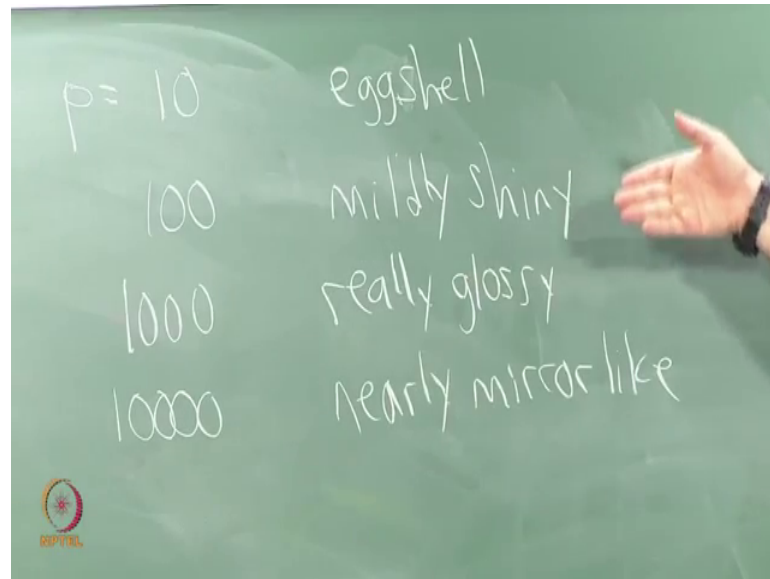 p= 10 eggshell
100 mildly shiny
1000 really glossy
10000 nearly mirror like
NPTEL